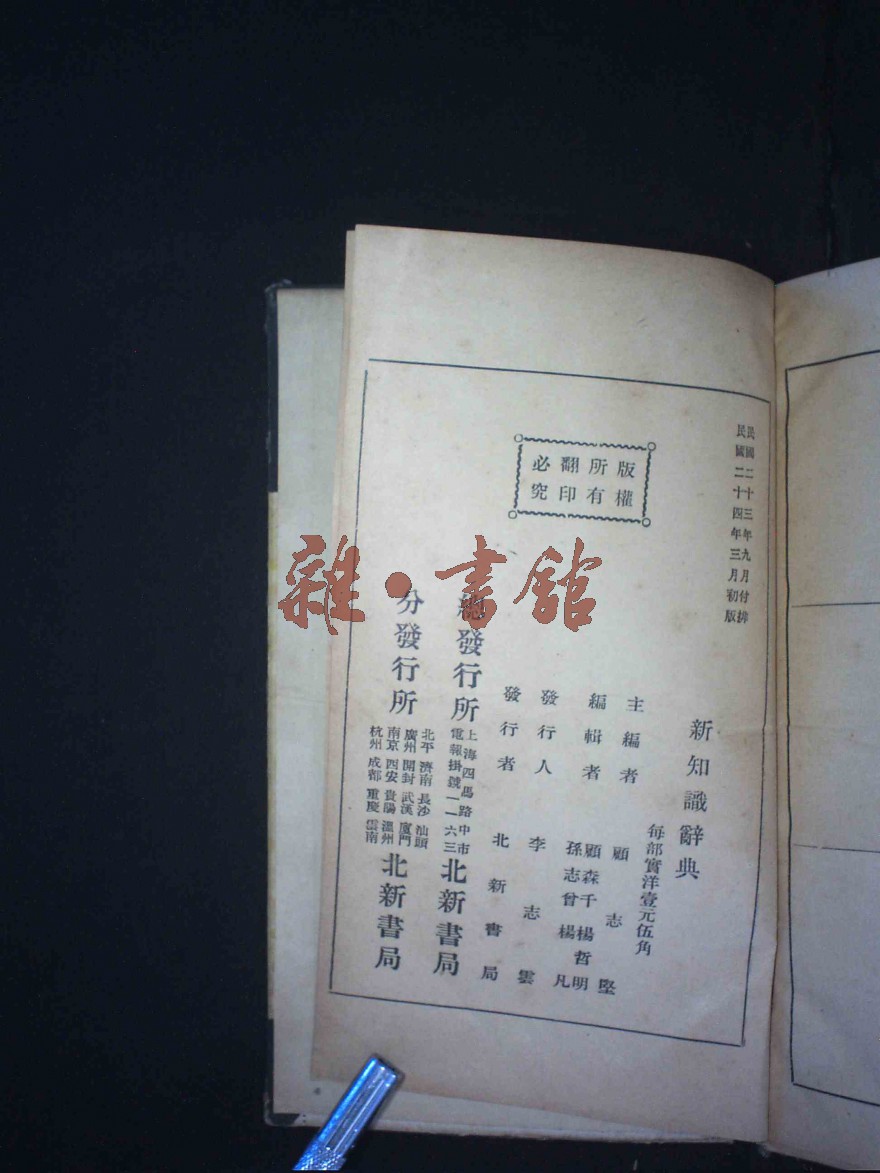 民國二十三年九月付排
民國二十四年三月初版
新知識辭典
每部實洋壹元伍角
主編者 顧志堅
編輯者 顧森千 楊哲明
孫志曾 楊凡
發行人 李志雲
發行者 北新書局
總發行所 上海四馬路中市
電報掛號一一六三 北新書局
分發行所 北平 濟南 長沙 汕頭
廣州 開封 武漢 廈門
南京 西安 貴陽 溫州
杭州 成都 重慶 雲南 北新書局
版權
所有
翻印
必究
雜·書館